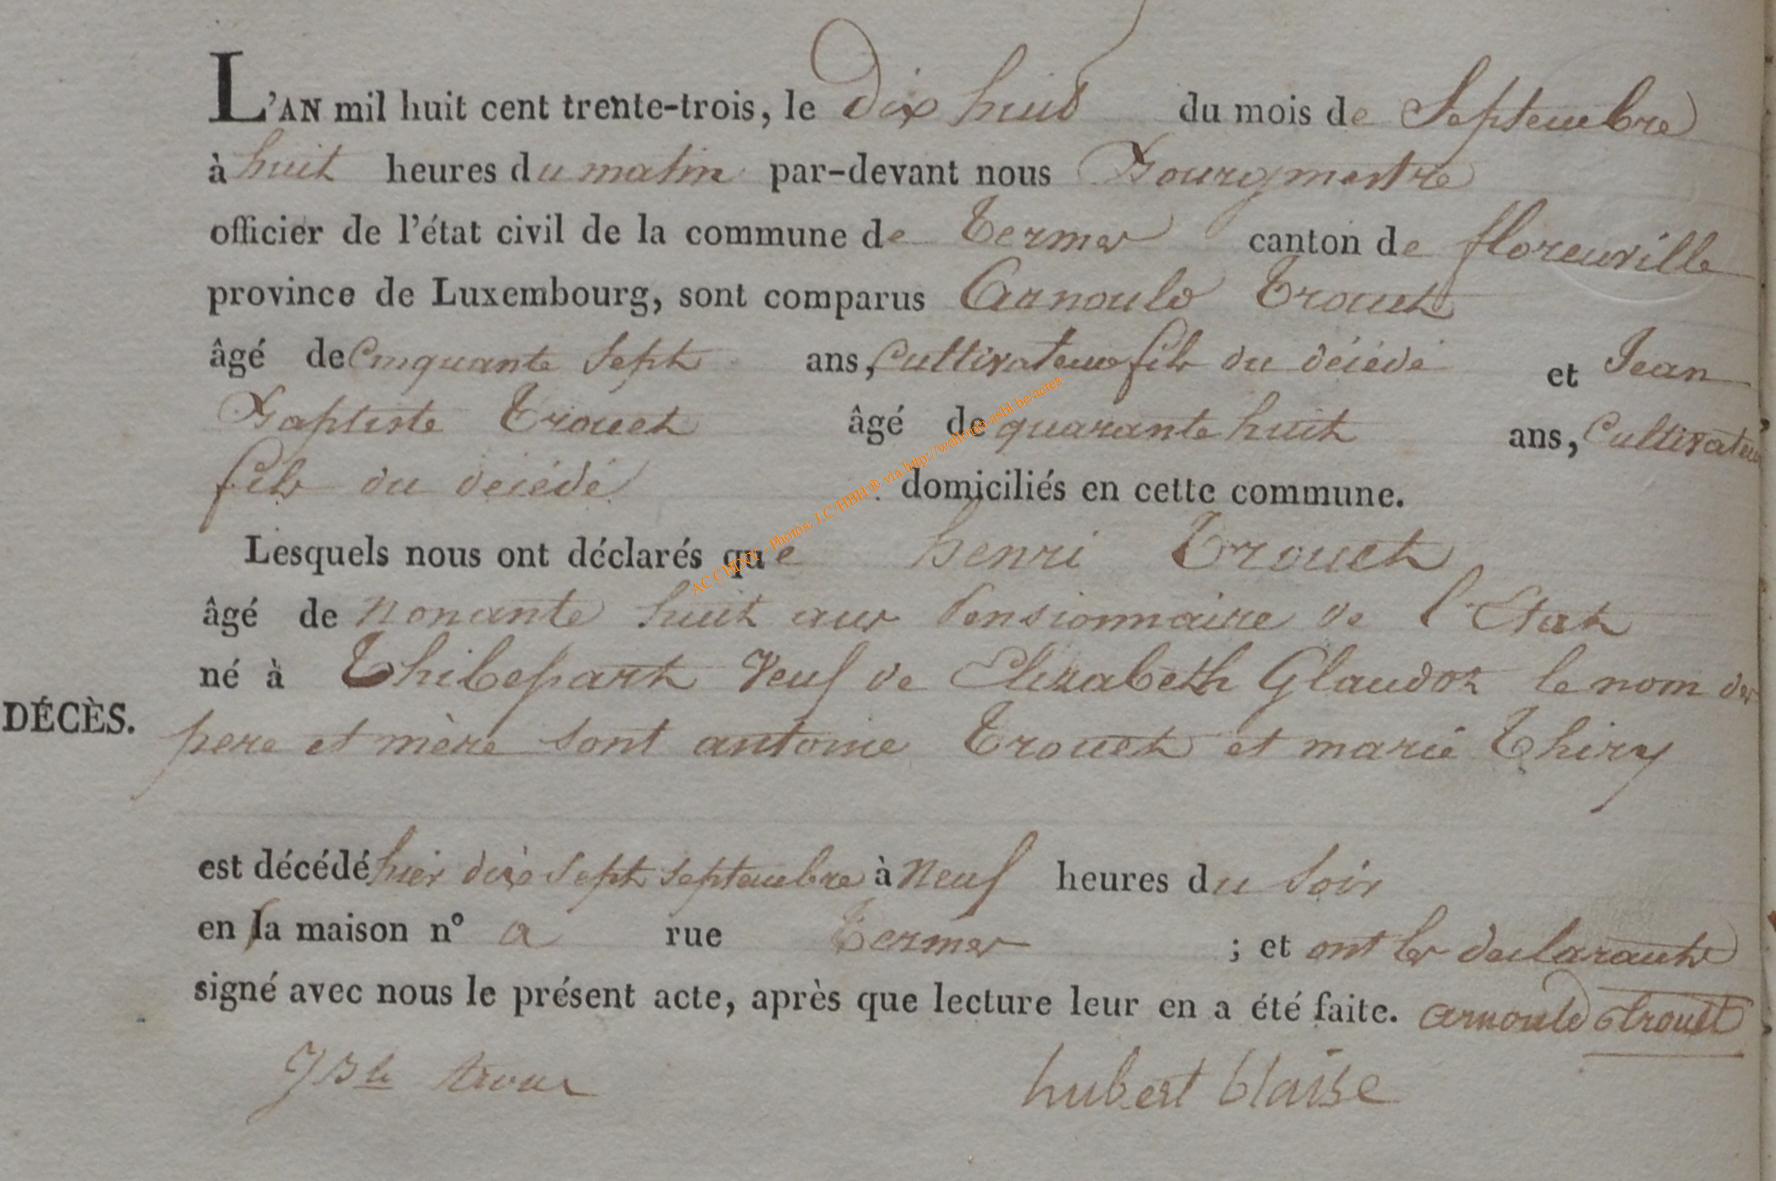 L'AN mil huit cent trente-trois, le dix huit du mois de Septembre
à huit heures du matin par-devant nous Bourgmestre
officier de l'état civil de la commune de Termes canton de florenville
province de Luxembourg, sont comparus Arnould Trouet
âgé de Cinquante Sept ans, Cultivateur fils du décédé et Jean
Baptiste Trouet âgé de quarante huit ans, Cultivateur
fils du décédé domiciliés en cette commune.
Lesquels nous ont déclarés que henri Trouet
âgé de Nonante huit ans Pensionnaire de l'Etat
né à Thibepart Veuf de Elizabeth Glaudot le nom des
DÉCÈS.
pere et mère sont antoine Trouet et marie Thiry
est décédé hier dix Sept septembre à Neuf heures du Soir
en sa maison n° a rue Termes ; et ont les declarants
signé avec nous le présent acte, après que lecture leur en a été faite. arnould trouet
JBte trouet hubert blaise
AC CHINY - Photos LC/HBH ® via http://wallonia.asbl.be/actes